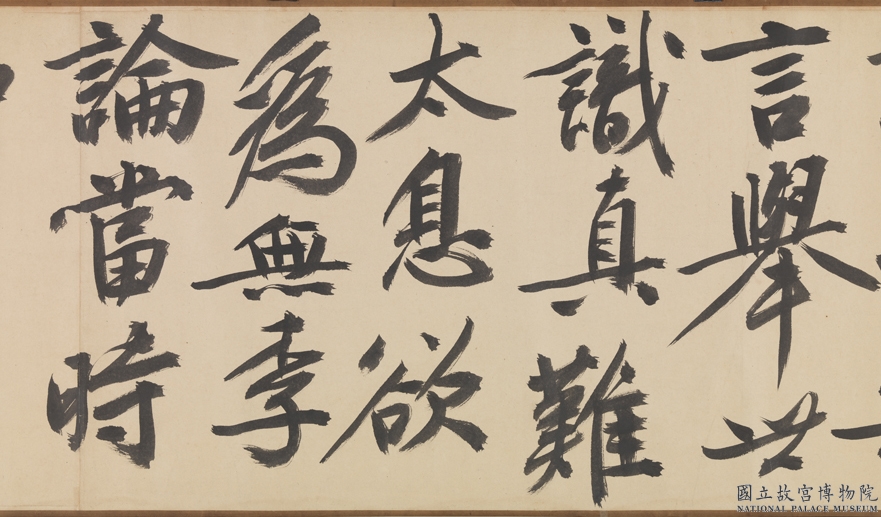 言舉世
識真難
太息欲
為無李
論當時
國立故宮博物院
NATIONAL PALACE MUSEUM